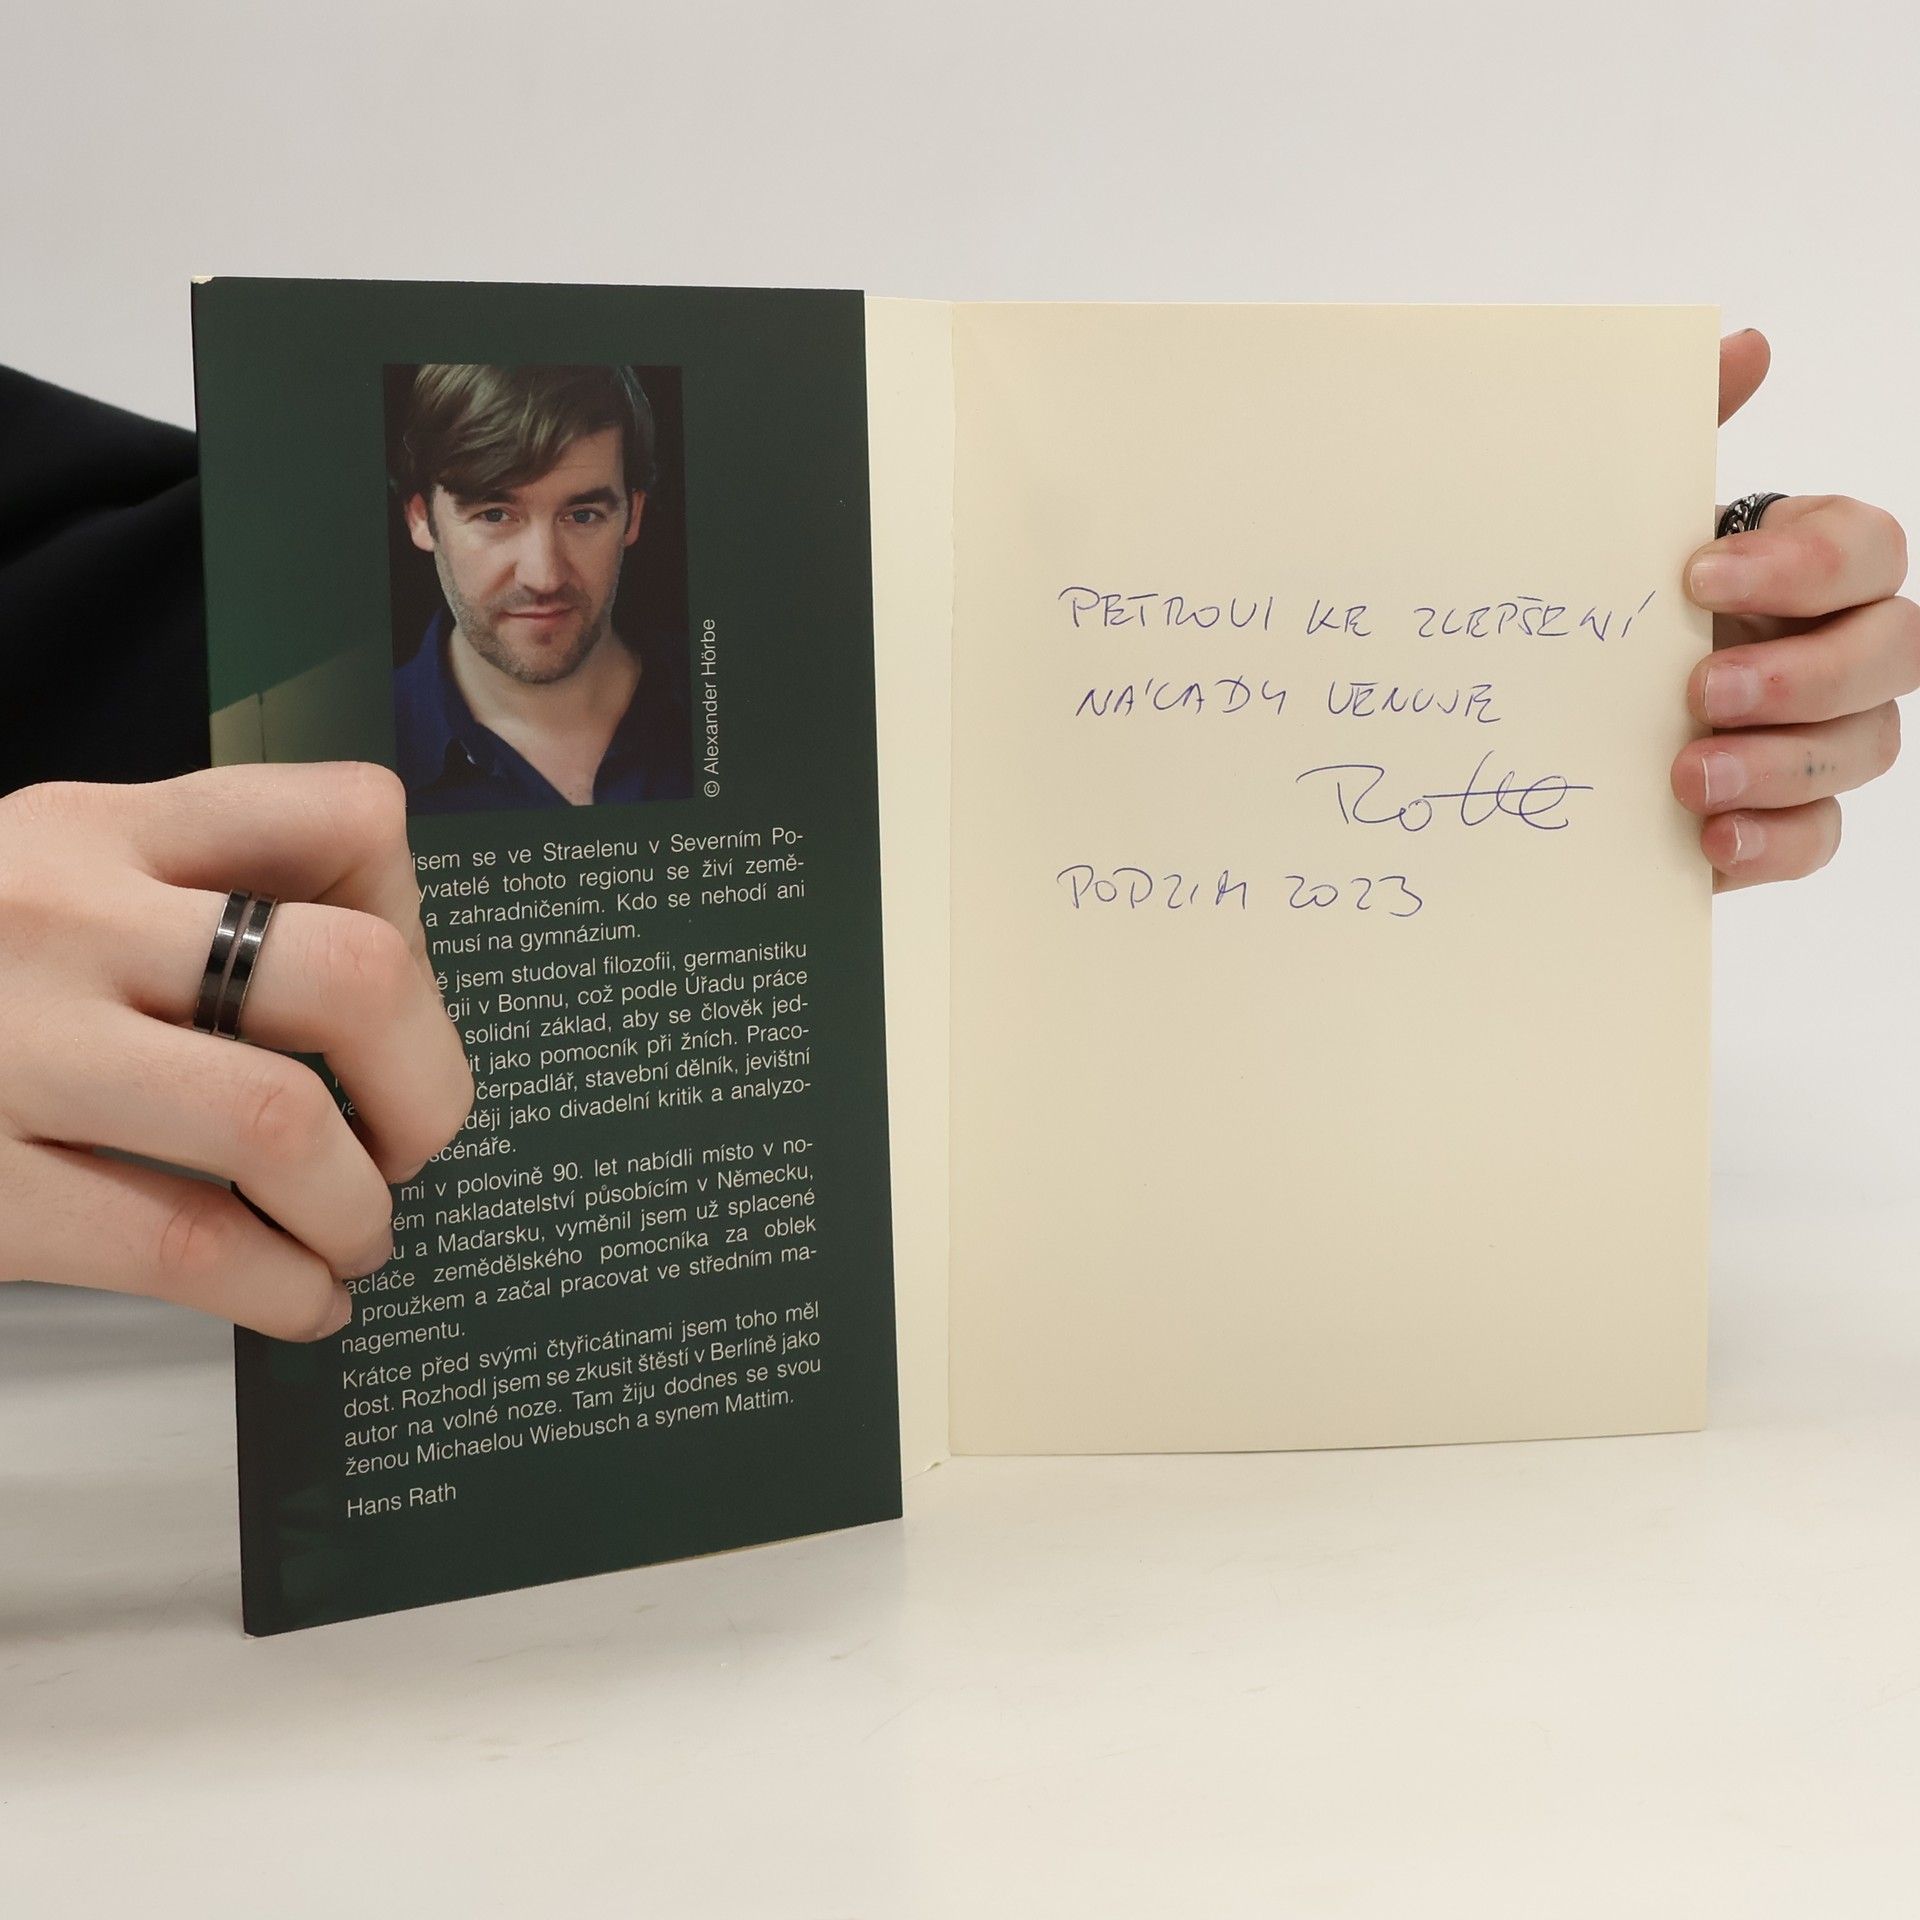 © Alexander Hörbe
jsem se ve Straelenu v Severním Po-
yvatelé tohoto regionu se živí země-
a zahradničením. Kdo se nehodí ani
musí na gymnázium.
ě jsem studoval filozofii, germanistiku
gii v Bonnu, což podle Úřadu práce
solidní základ, aby se člověk jed-
it jako pomocník při žních. Praco-
čerpadlář, stavební dělník, jevištní
ději jako divadelní kritik a analyzo-
scénáře.
mi v polovině 90. let nabídli místo v no-
ém nakladatelství působícím v Německu,
u a Maďarsku, vyměnil jsem už splacené
acláče zemědělského pomocníka za oblek
proužkem a začal pracovat ve středním ma-
nagementu.
Krátce před svými čtyřicátinami jsem toho měl
dost. Rozhodl jsem se zkusit štěstí v Berlíně jako
autor na volné noze. Tam žiju dodnes se svou
ženou Michaelou Wiebusch a synem Mattim.
Hans Rath
PETROVI KE ZLEPŠENÍ
NÁLADY VĚNUJE
PODZIM 2023